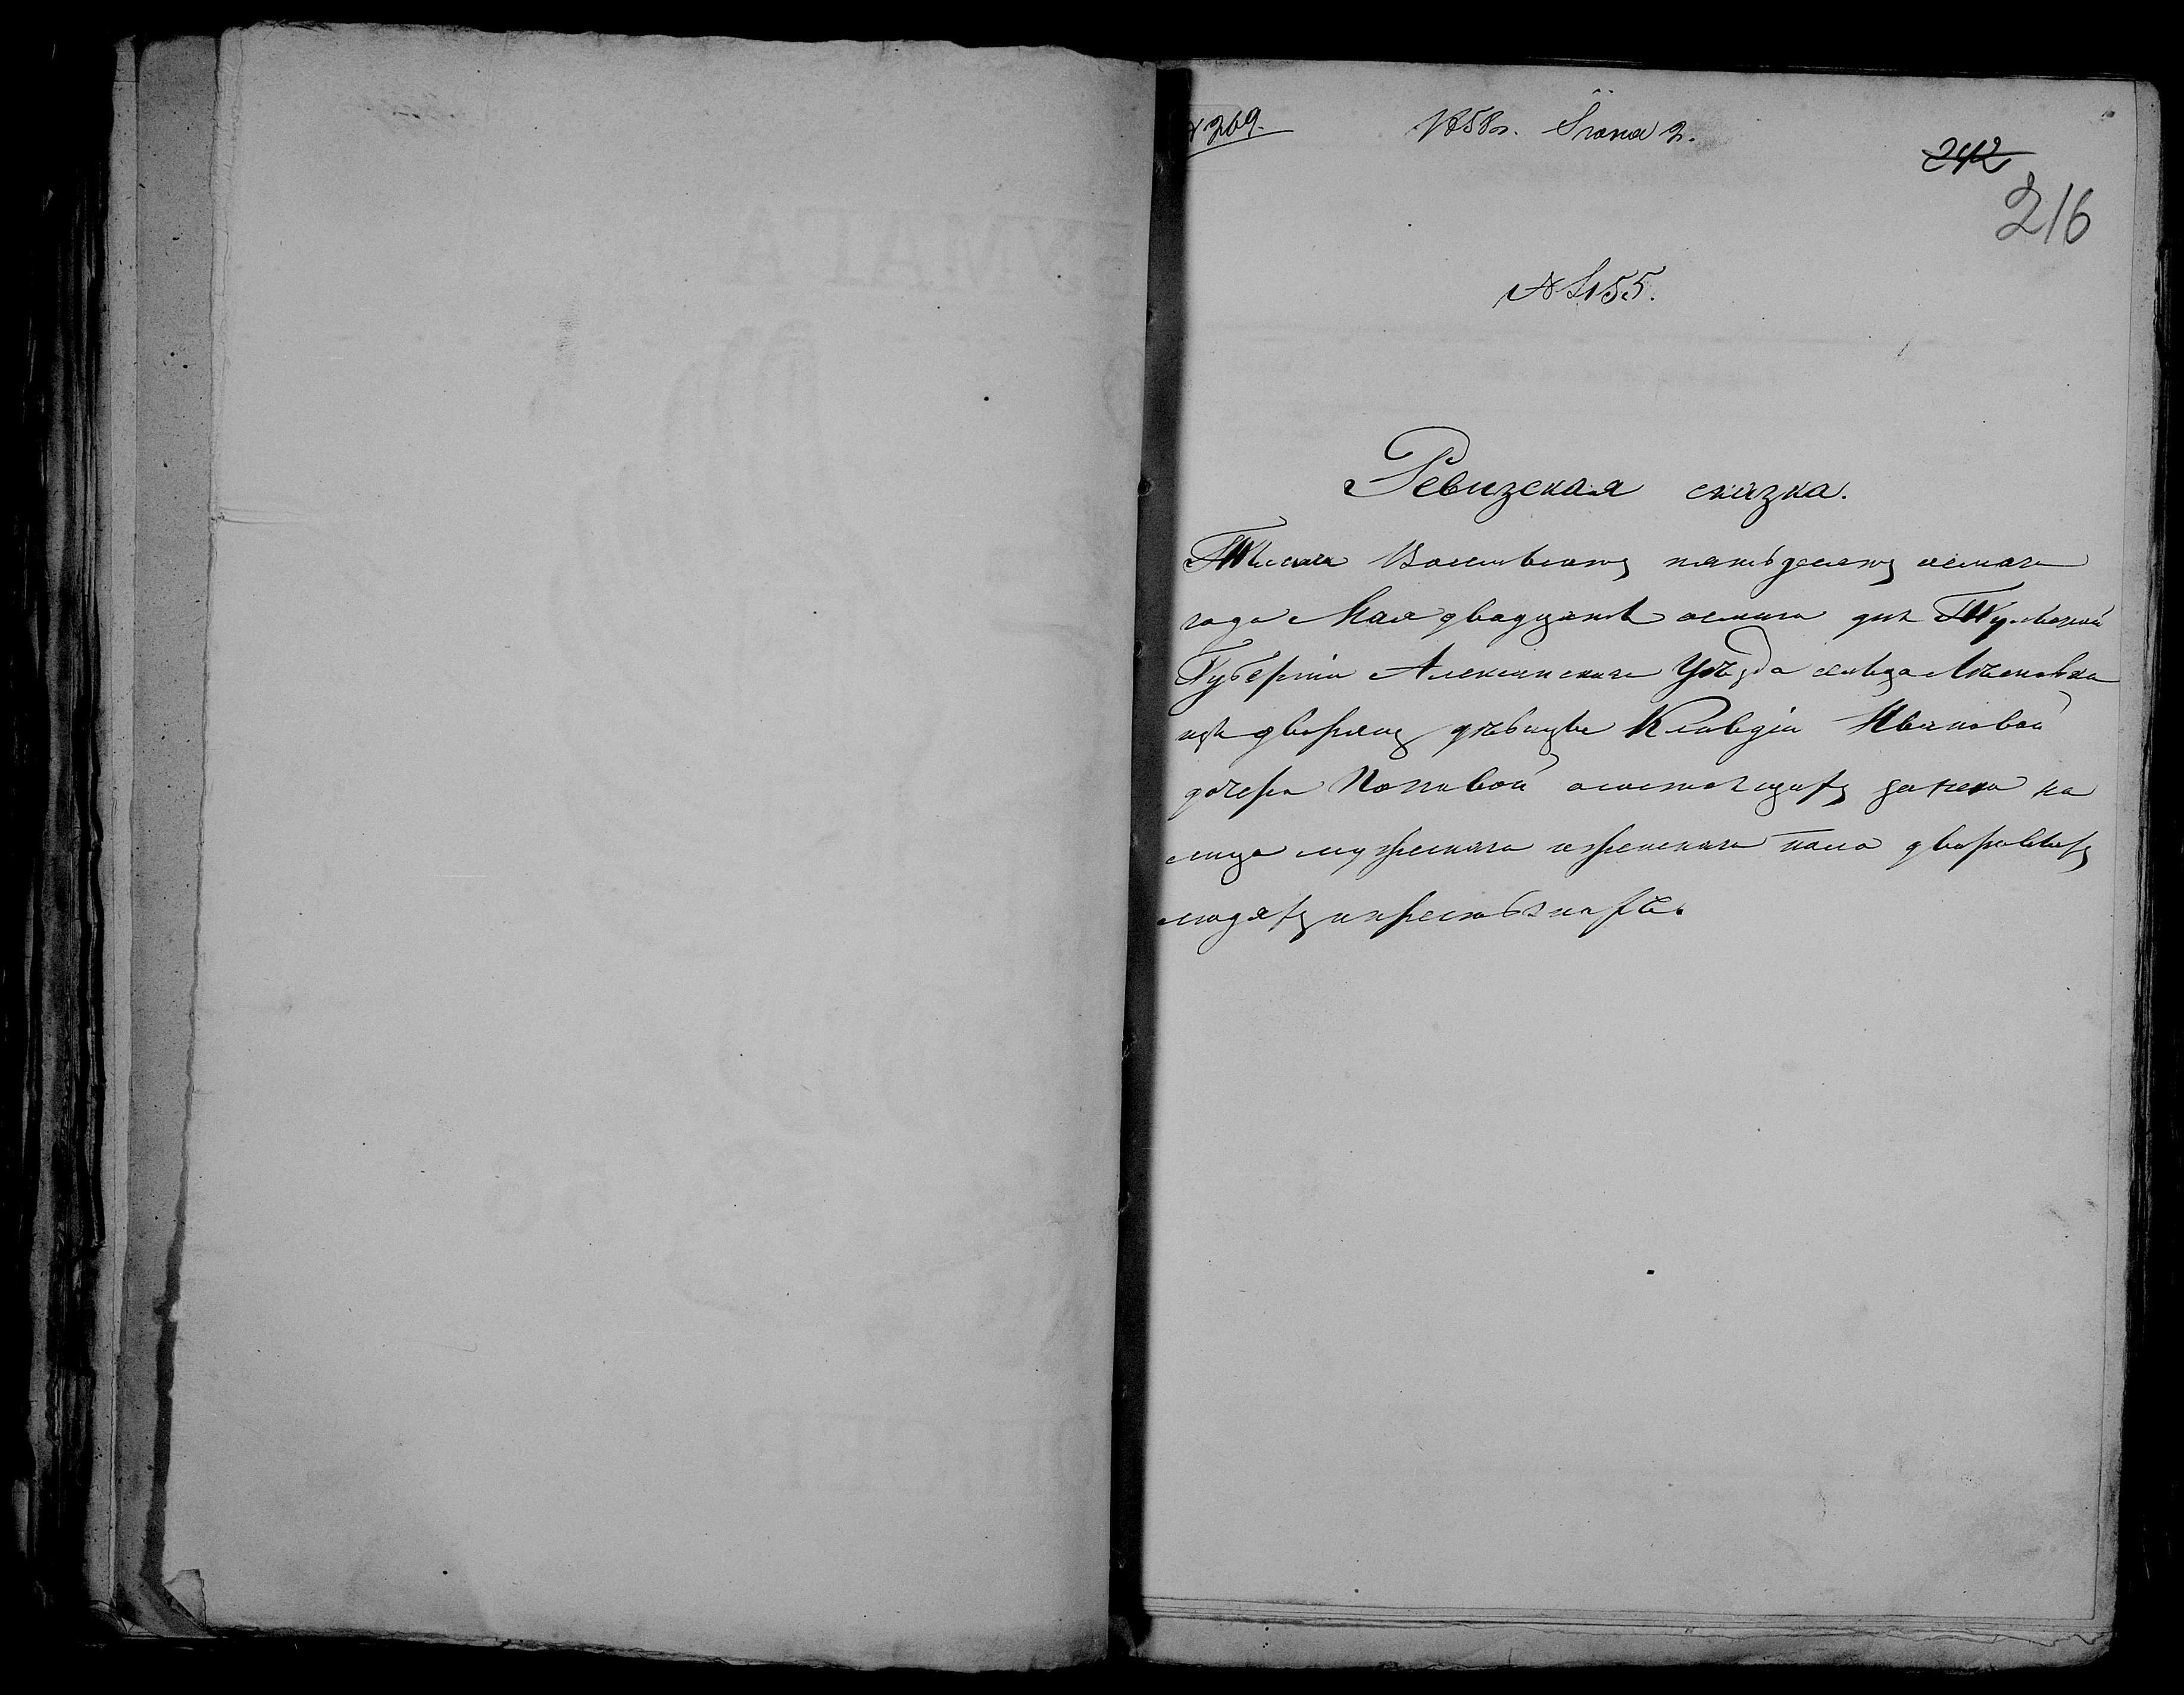 № 269. 1858 г. Іюня 2.
242
216
№ 155.
Ревизская сказка.
Тысяча Восемьсотъ пятьдесятъ осмаго
года Мая двадцать осмаго дня Тульской
Губерніи Алексинскаго Уѣзда сельца
изъ дворянъ дѣвицы Клавдіи Ивановой
дочери Поповой о состоящихъ за нею на
лицо мужескаго и женскаго пола дворовыхъ
людяхъ и крестьянахъ.